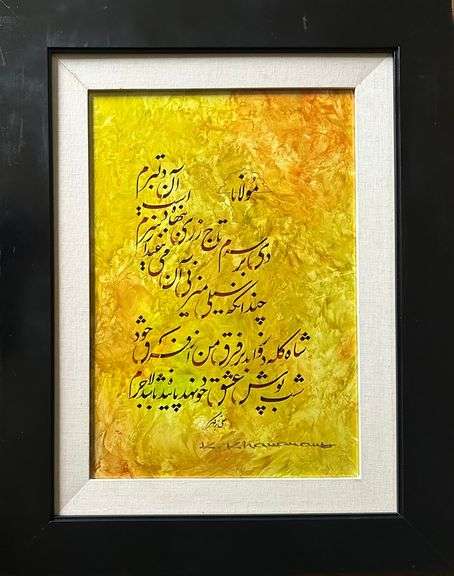 مولانا
دی بر سرم تاج زری بنهاده است آن دلبرم
چندانکه سیلی میزنی آن می نیفتد از سرم
شاه کله دوز ابد بر فرق من از فرق خود
شب پوش عشق خود نهد پاینده باشد لاجرم